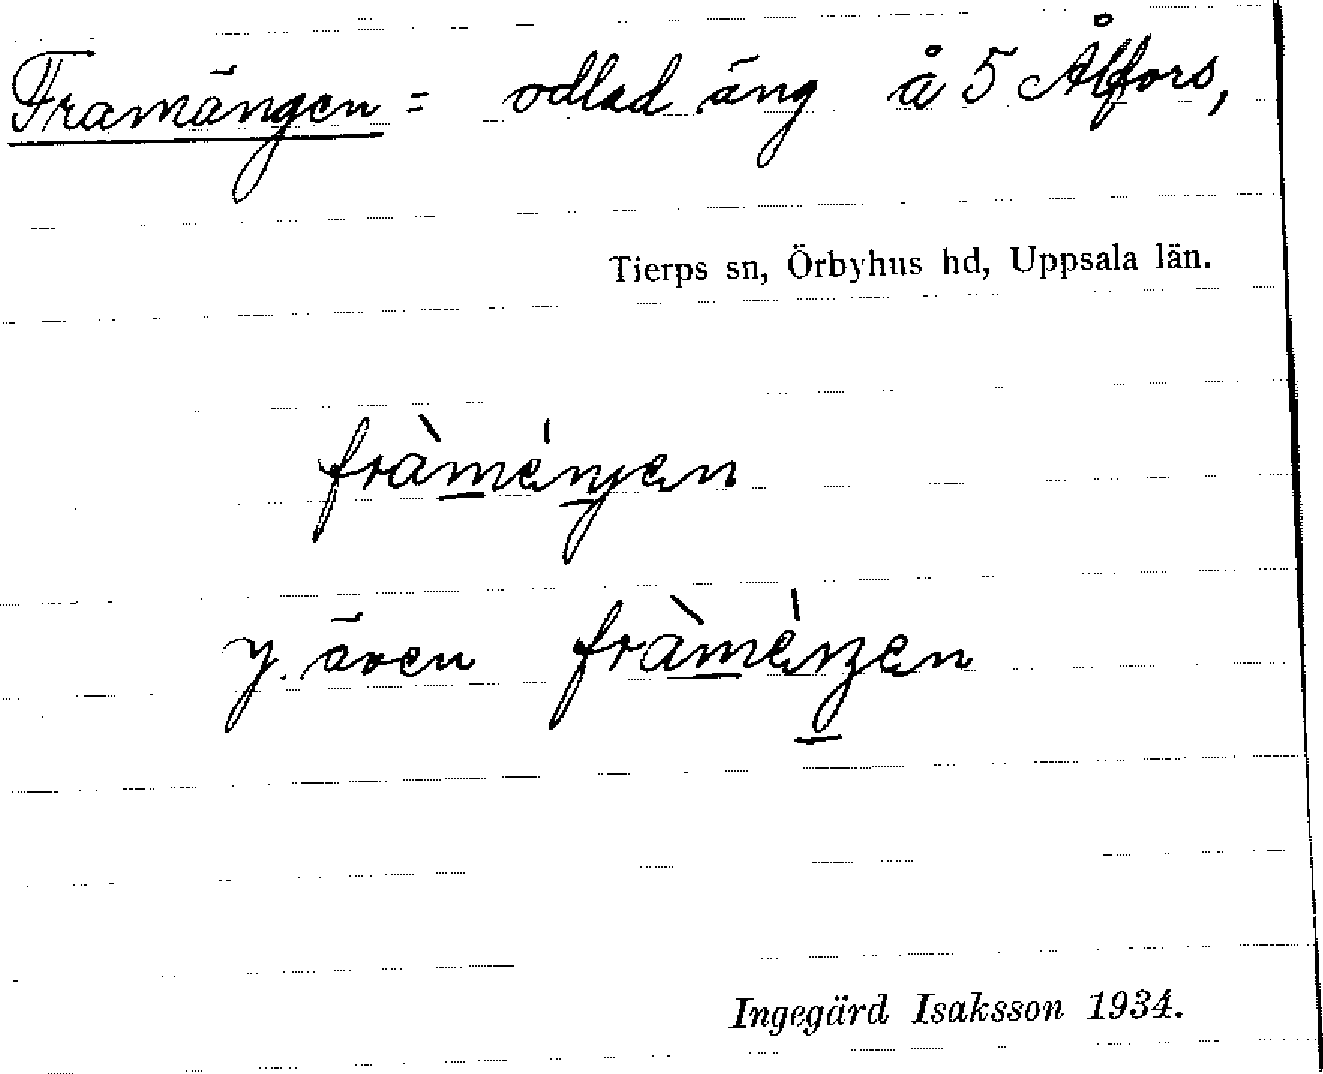 Framängen = odlad äng å 5 Ålfors,
Tierps sn, Örbyhus hd, Uppsala län.
fràméŋen
y. även fràméŋen
Ingegärd Isaksson 1934.